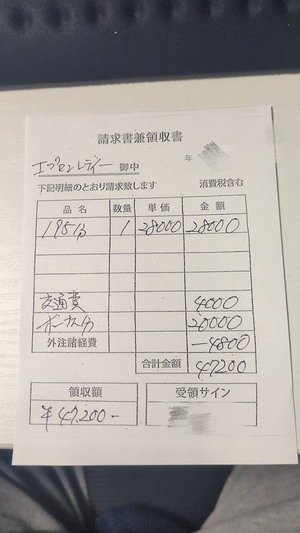 請求書兼領収書
年
エプセンレディー 御中
下記明細のとおり請求致します 消費税含む
品名 数量 単価 金額
1 28000 28000
交通費 4000
ボーナス 20000
外注諸経費 -4800
合計金額 47200
領収額 受領サイン
¥47,200-